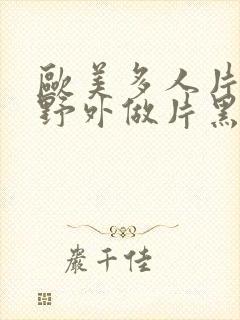 歐美多人片
野外做片黑
嚴千佳